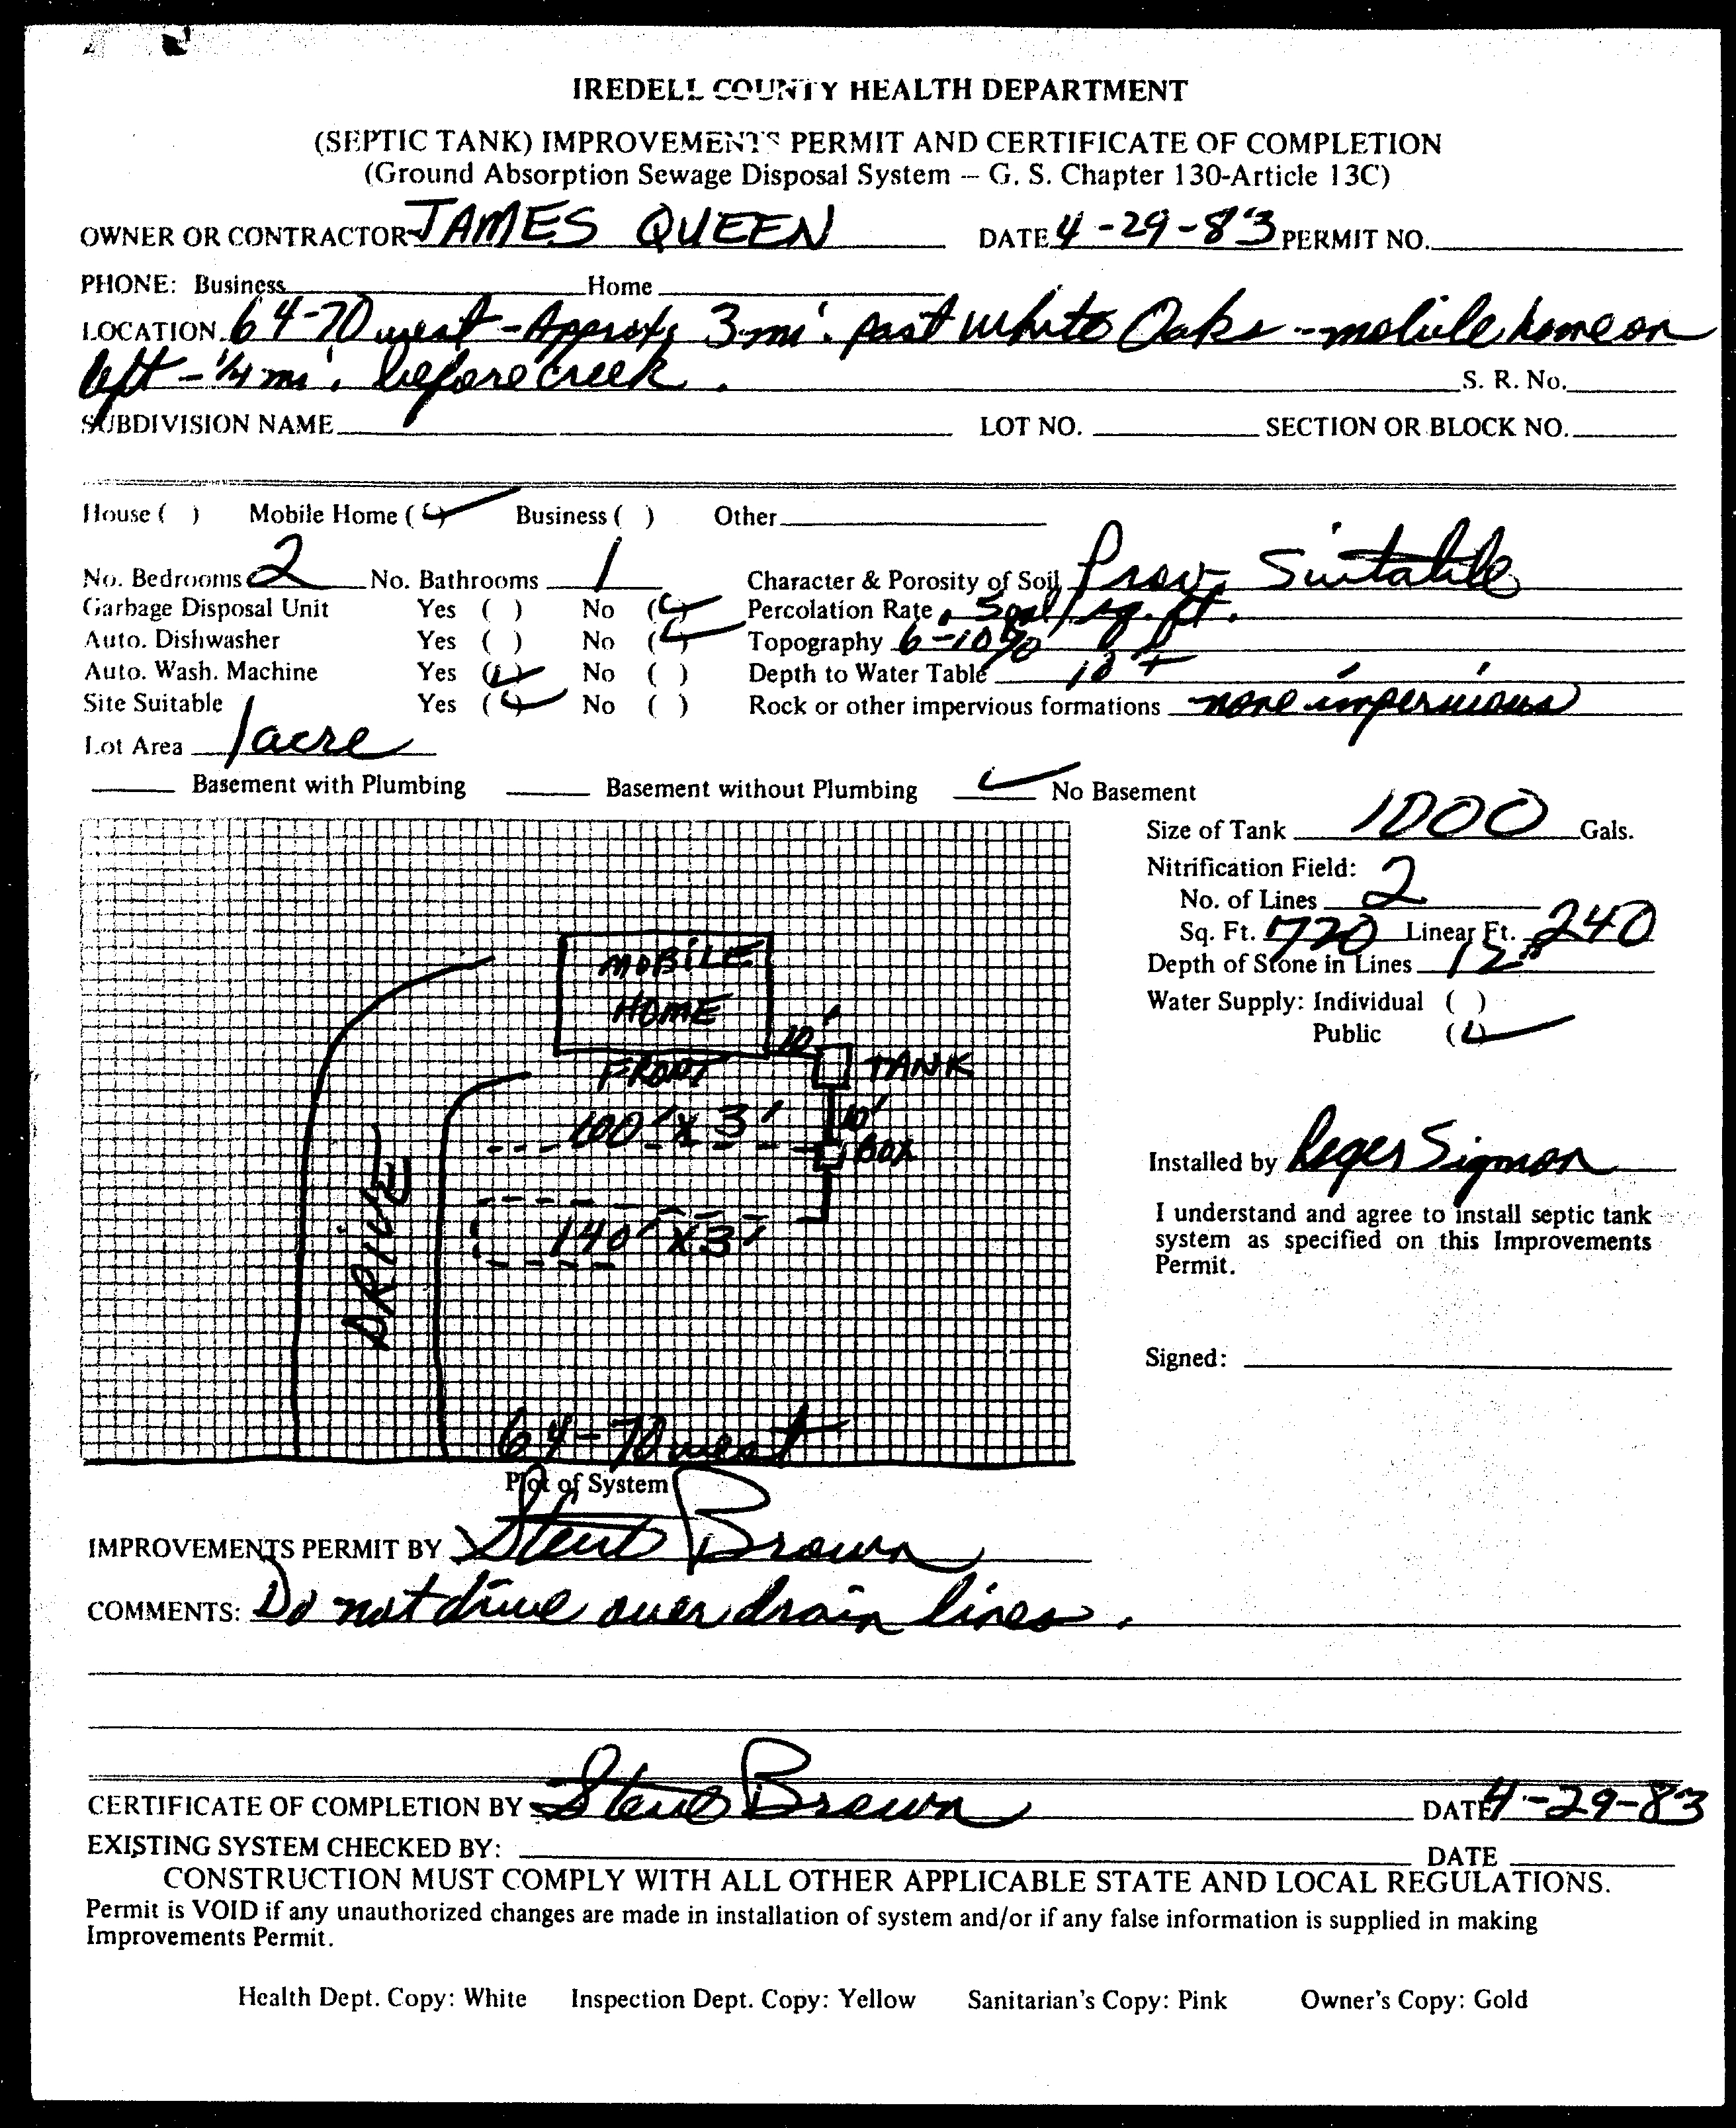 IREDELL COUNTY HEALTH DEPARTMENT
(SEPTIC TANK) IMPROVEMENTS PERMIT AND CERTIFICATE OF COMPLETION
(Ground Absorption Sewage Disposal System – G. S. Chapter 130-Article 13C)
OWNER OR CONTRACTOR JAMES QUEEN DATE 4-29-83 PERMIT NO.
PHONE: Business Home
LOCATION 64-70 west - Approx. 3 mi. past White Oaks - mobile home on
left - 1/4 mi. before creek. S. R. No.
SUBDIVISION NAME LOT NO. SECTION OR BLOCK NO.
House ( ) Mobile Home (✓) Business ( ) Other
No. Bedrooms 2 No. Bathrooms 1 Character & Porosity of Soil Prov. Suitable
Garbage Disposal Unit Yes ( ) No (✓) Percolation Rate .5gal/sq. ft.
Auto. Dishwasher Yes ( ) No (✓) Topography 6-10%
Auto. Wash. Machine Yes (✓) No ( ) Depth to Water Table 10+
Site Suitable Yes (✓) No ( ) Rock or other impervious formations none impervious
Lot Area 1 acre
Basement with Plumbing Basement without Plumbing ✓ No Basement
Size of Tank 1000 Gals.
Nitrification Field:
No. of Lines 2
Sq. Ft. 720 Linear Ft. 240
Depth of Stone in Lines 12"
Water Supply: Individual ( )
Public (✓)
MOBILE
HOME
10'
FRONT
TANK
100' X 3'
10'
BOX
140' X 3'
DRIVE
64-70 west
Installed by Roger Sigmon
I understand and agree to install septic tank
system as specified on this Improvements
Permit.
Signed:
Plot of System
IMPROVEMENTS PERMIT BY Steve Brown
COMMENTS: Do not drive over drain lines.
CERTIFICATE OF COMPLETION BY Steve Brown DATE 4-29-83
EXISTING SYSTEM CHECKED BY: DATE
CONSTRUCTION MUST COMPLY WITH ALL OTHER APPLICABLE STATE AND LOCAL REGULATIONS.
Permit is VOID if any unauthorized changes are made in installation of system and/or if any false information is supplied in making
Improvements Permit.
Health Dept. Copy: White Inspection Dept. Copy: Yellow Sanitarian's Copy: Pink Owner's Copy: Gold